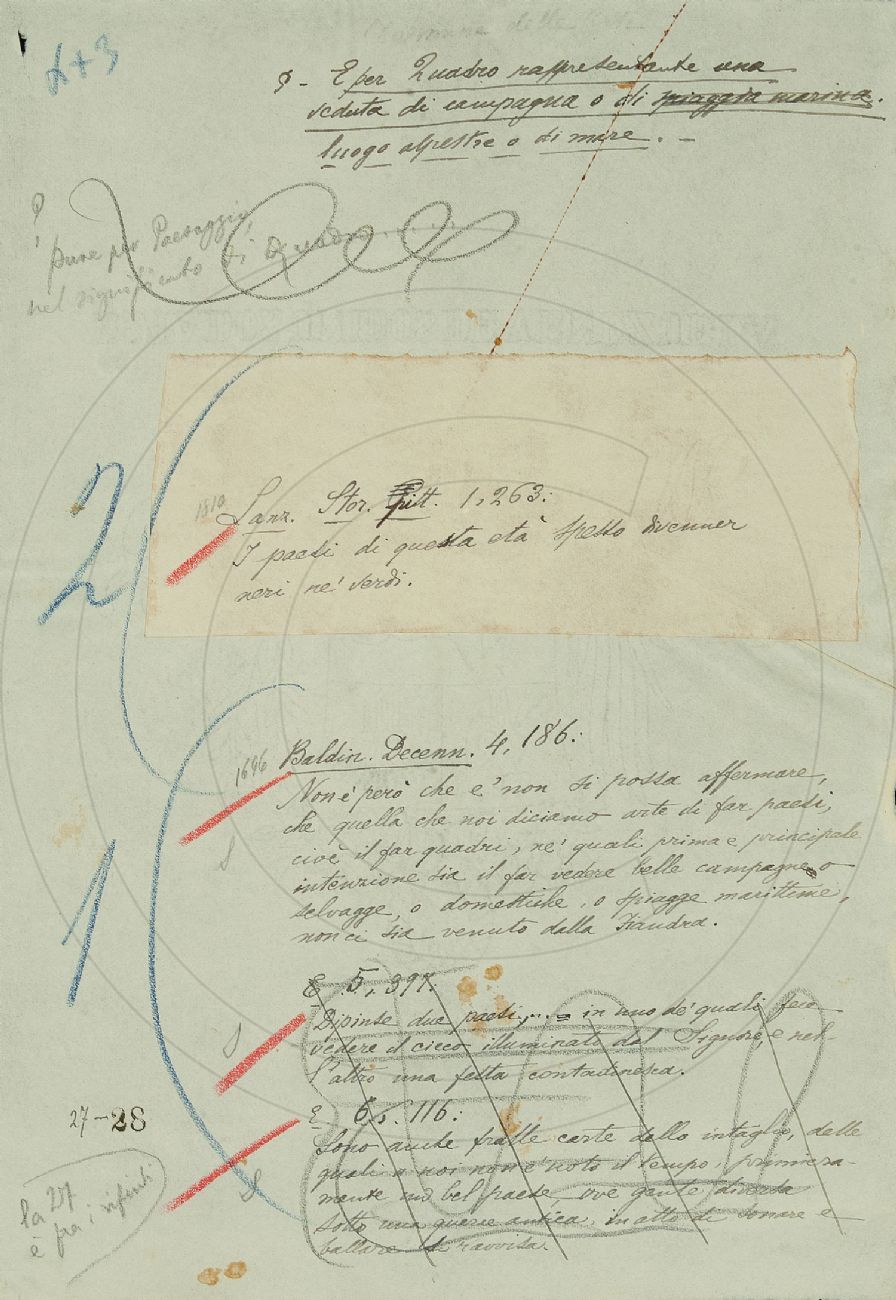 § - E per Quadro rappresentante una
veduta di campagna o di spiaggia marina.
luogo alpestre o di mare. -
?
pure per Paesaggio
nel significato di Quadro......
2
1810
Lanz. Stor. pitt. 1, 263:
I paesi di questa età spesso divenner
neri ne' verdi.
1
1696
Baldin. Decenn. 4, 186:
Non è però che e' non si possa affermare,
che quella che noi diciamo arte di far paesi,
cioè il far quadri, ne' quali prima e principale
intenzione sia il far vedere belle campagne o
selvagge, o domestiche, o spiagge marittime,
non ci sia venuto dalla Fiandra.
S
E 5, 397:
Dipinse due paesi..... in uno de' quali fece
vedere il cieco illuminato dal Signore, e nel-
l'altro una festa contadinesca.
S
27-28
E 6, 116:
Sono anche fralle carte dello intaglio, delle
quali a noi non è noto il tempo, primiera-
mente un bel paese, ove gente diversa
sotto una querce antica, in atto di sonare e
ballare si ravvisa.
S
la 27
è fra i rifiuti